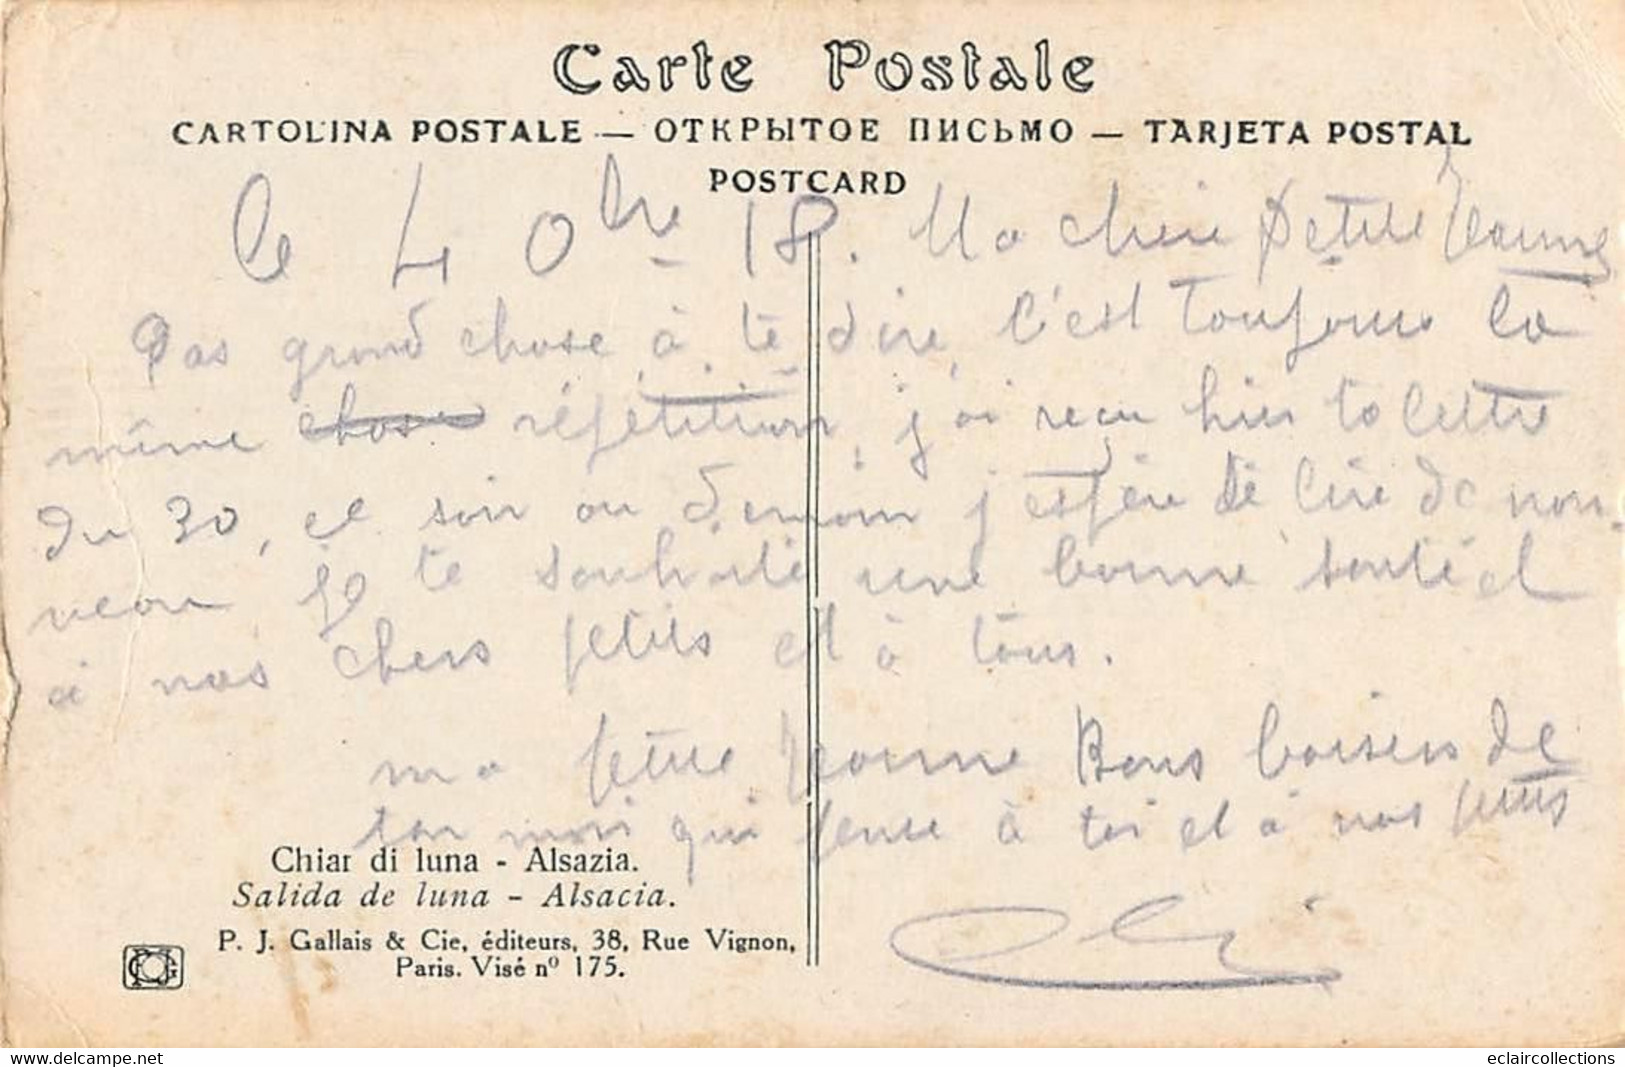 Carte Postale
CARTOLINA POSTALE — ОТКРЫТОЕ ПИСЬМО — TARJETA POSTAL
POSTCARD
le 4 Obre 18. Ma chère Petite Jeanne
Pas grand chose à te dire, c'est toujours la
même chose répétition, j'ai reçu hier ta lettre
du 30, ce soir ou demain j'espère te lire de nou-
veau je te souhaite une bonne santé et
à nos chers petits et à tous.
ma petite Jeanne Bons baisers de
ton mari qui pense à toi et à nos petits
Chiar di luna - Alsazia.
Salida de luna - Alsacia.
P. J. Gallais & Cie, éditeurs, 38, Rue Vignon,
Paris. Visé nº 175.
delcampe.net
eclaircollections